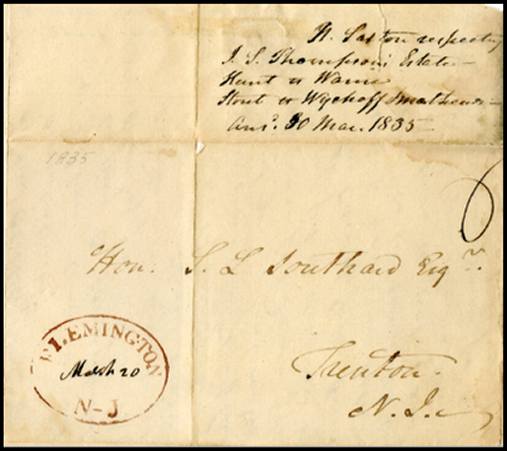 N. Saxton respecting
J. S. Thompson's Estate
Hunt v Warne
Stout v Wyckoff
Ansd. 30 Mar. 1835
1835
Hon. S. L Southard Esqr.
FLEMINGTON
March 20
N-J
Trenton.
N. J.